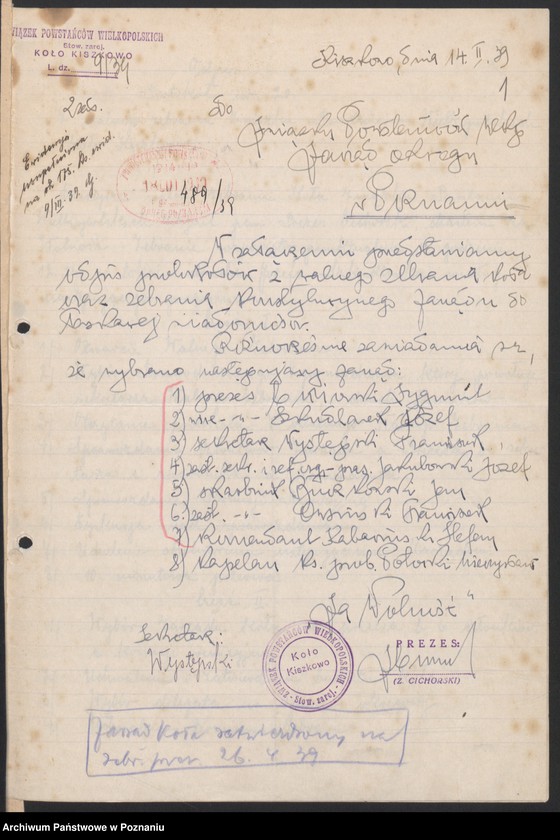 ZWIĄZEK POWSTAŃCÓW WIELKOPOLSKICH
Stow. zarej.
KOŁO KISZKOWO
L. dz. 9/39
Kiszkowo, dnia 14. II. 39
1
2 zał.
Do
Związku Powstańców Wlkp
Zarząd Okręgu
w Poznaniu
Ewidencja
uzupełniona
489/39
W załączeniu przedstawiamy
odpis protokółów z walnego zebrania Koła
oraz zebrania konstytucyjnego Zarządu do
łaskawej wiadomości.
Równocześnie zawiadamia się,
że wybrano następujący Zarząd:
1) prezes Cichorski Zygmunt
2) wice -"- Józef
3) sekretarz Wystęjski Franciszek
4) zast. sekr. i ref. org. pras. Jakubowski Józef
5) skarbnik Jan
6) zast. -"- Franciszek
7) Komendant Stefan
8) Kapelan ks. prob. Mieczysław
„Za Wolność"
Sekretarz:
Wystęjski
ZWIĄZEK POWSTAŃCÓW WIELKOPOLSKICH
Stow. zarej.
Koło
Kiszkowo
PREZES:
(Z. CICHORSKI)
Zarząd Koła zatwierdzony na
zebr. prez. 26. 4 39
Archiwum Państwowe w Poznaniu